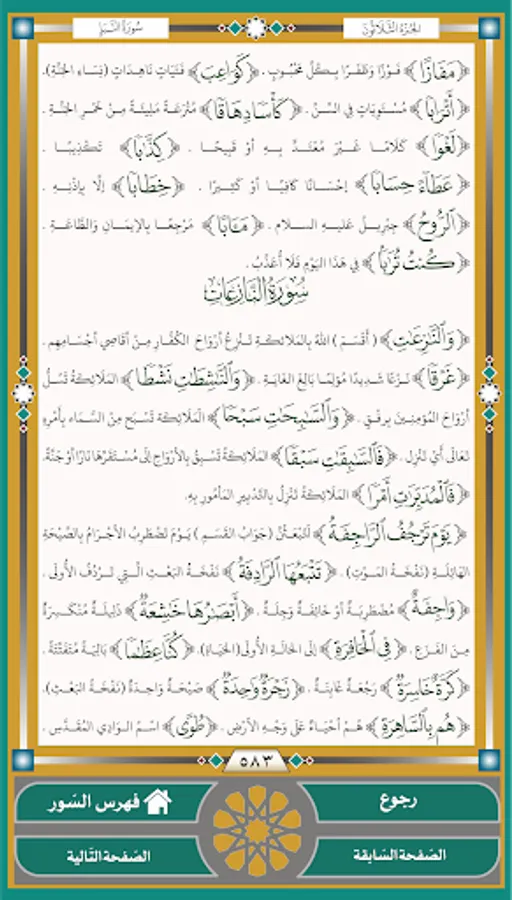 الجزء الثلاثون
سورة النبإ
﴿مَفَازًا﴾ فَوْزًا وَظَفَرًا بِكُلِّ مَحْبُوبٍ . ﴿كَوَاعِبَ﴾ فَتَيَاتٍ نَاهِدَاتٍ (نِسَاءِ الجَنَّةِ).
﴿أَتْرَابًا﴾ مُسْتَوِيَاتٍ فِي السِّنِّ . ﴿كَأْسًا دِهَاقًا﴾ مُتْرَعَةً مَلِيئَةً مِنْ خَمْرِ الجَنَّةِ .
﴿لَغْوًا﴾ كَلَامًا غَيْرَ مُعْتَدٍّ بِهِ أَوْ قَبِيحًا . ﴿كِذَّابًا﴾ تَكْذِيبًا .
﴿عَطَاءً حِسَابًا﴾ إِحْسَانًا كَافِيًا أَوْ كَثِيرًا . ﴿خِطَابًا﴾ إِلَّا بِإِذْنِهِ .
﴿الرُّوحُ﴾ جِبْرِيلُ عَلَيهِ السلام . ﴿مَـَٔابًا﴾ مَرْجِعًا بِالإِيمَانِ وَالطَّاعَةِ .
﴿كُنتُ تُرَابًا﴾ فِي هَذَا اليَوْمِ فَلَا أُعَذَّبُ .
سُورَةُ النَّازِعَاتِ
﴿وَالنَّازِعَاتِ﴾ ( أَقْسَمَ ) اللهُ بِالمَلَائِكَةِ تَنْزِعُ أَرْوَاحَ الكُفَّارِ مِنْ أَقَاصِي أَجْسَامِهِم .
﴿غَرْقًا﴾ نَزْعًا شَدِيدًا مُؤلِمًا بَالِغَ الغَايَةِ . ﴿وَالنَّاشِطَاتِ نَشْطًا﴾ المَلَائِكَةُ تَسُلُّ
أَرْوَاحَ المُؤمِنِينَ بِرِفْقٍ . ﴿وَالسَّابِحَاتِ سَبْحًا﴾ المَلَائِكَةُ تَسْبَحُ مِنَ السَّمَاءِ بِأَمْرِهِ
تَعَالَى أَيْ تَنْزِلُ . ﴿فَالسَّابِقَاتِ سَبْقًا﴾ المَلَائِكَةُ تَسْبِقُ بِالأَرْوَاحِ إِلَى مُسْتَقَرِّهَا نَارًا أَوْ جَنَّةً.
﴿فَالْمُدَبِّرَاتِ أَمْرًا﴾ المَلَائِكَةُ تَنْزِلُ بِالتَّدْبِيرِ المَأمُورِ بِهِ.
﴿يَوْمَ تَرْجُفُ الرَّاجِفَةُ﴾ لَتُبْعَثُنَّ (جَوَابُ القَسَمِ ) يَوْمَ تَضْطَرِبُ الأَجْرَامُ بِالصَّيْحَةِ
الهَائِلَةِ (نَفْخَةِ المَوْتِ) . ﴿تَتْبَعُهَا الرَّادِفَةُ﴾ نَفْخَةُ البَعْثِ الَّتِي تَرْدُفُ الأُولَى .
﴿وَاجِفَةٌ﴾ مُضْطَرِبَةٌ أَوْ خَائِفَةٌ وَجِلَةٌ . ﴿أَبْصَارُهَا خَاشِعَةٌ﴾ ذَلِيلَةٌ مُنْكَسِرَةٌ
مِنَ الفَزَعِ . ﴿فِي الْحَافِرَةِ﴾ إِلَى الحَالَةِ الأُولَى (الحَيَاةِ). ﴿كُنَّا عِظَامًا﴾ بَالِيَةً مُتَفَتِّتَةً .
﴿كَرَّةٌ خَاسِرَةٌ﴾ رَجْعَةٌ غَابِنَةٌ . ﴿زَجْرَةٌ وَاحِدَةٌ﴾ صَيْحَةٌ وَاحِدَةٌ (نَفْخَةُ البَعْثِ).
﴿هُم بِالسَّاهِرَةِ﴾ هُمْ أَحْيَاءٌ عَلَى وَجْهِ الأَرْضِ . ﴿طُوًى﴾ اسْمُ الوَادِي المُقَدَّسِ .
٥٨٣
رجوع
فهرس السّور
الصّفحة السّابقة
الصّفحة التّالية